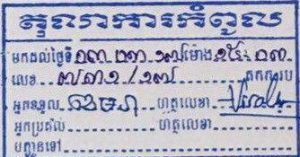 តុលាការកំពូល
មកដល់ថ្ងៃទី ១៣.១៣.១៧ ម៉ោង ១៥:០៣
លេខ ៧៣១/១៧ តកករប
អ្នកទទួល ឆមរា ហត្ថលេខា
អ្នកប្រគល់ ហត្ថលេខា
បញ្ជូនទៅ